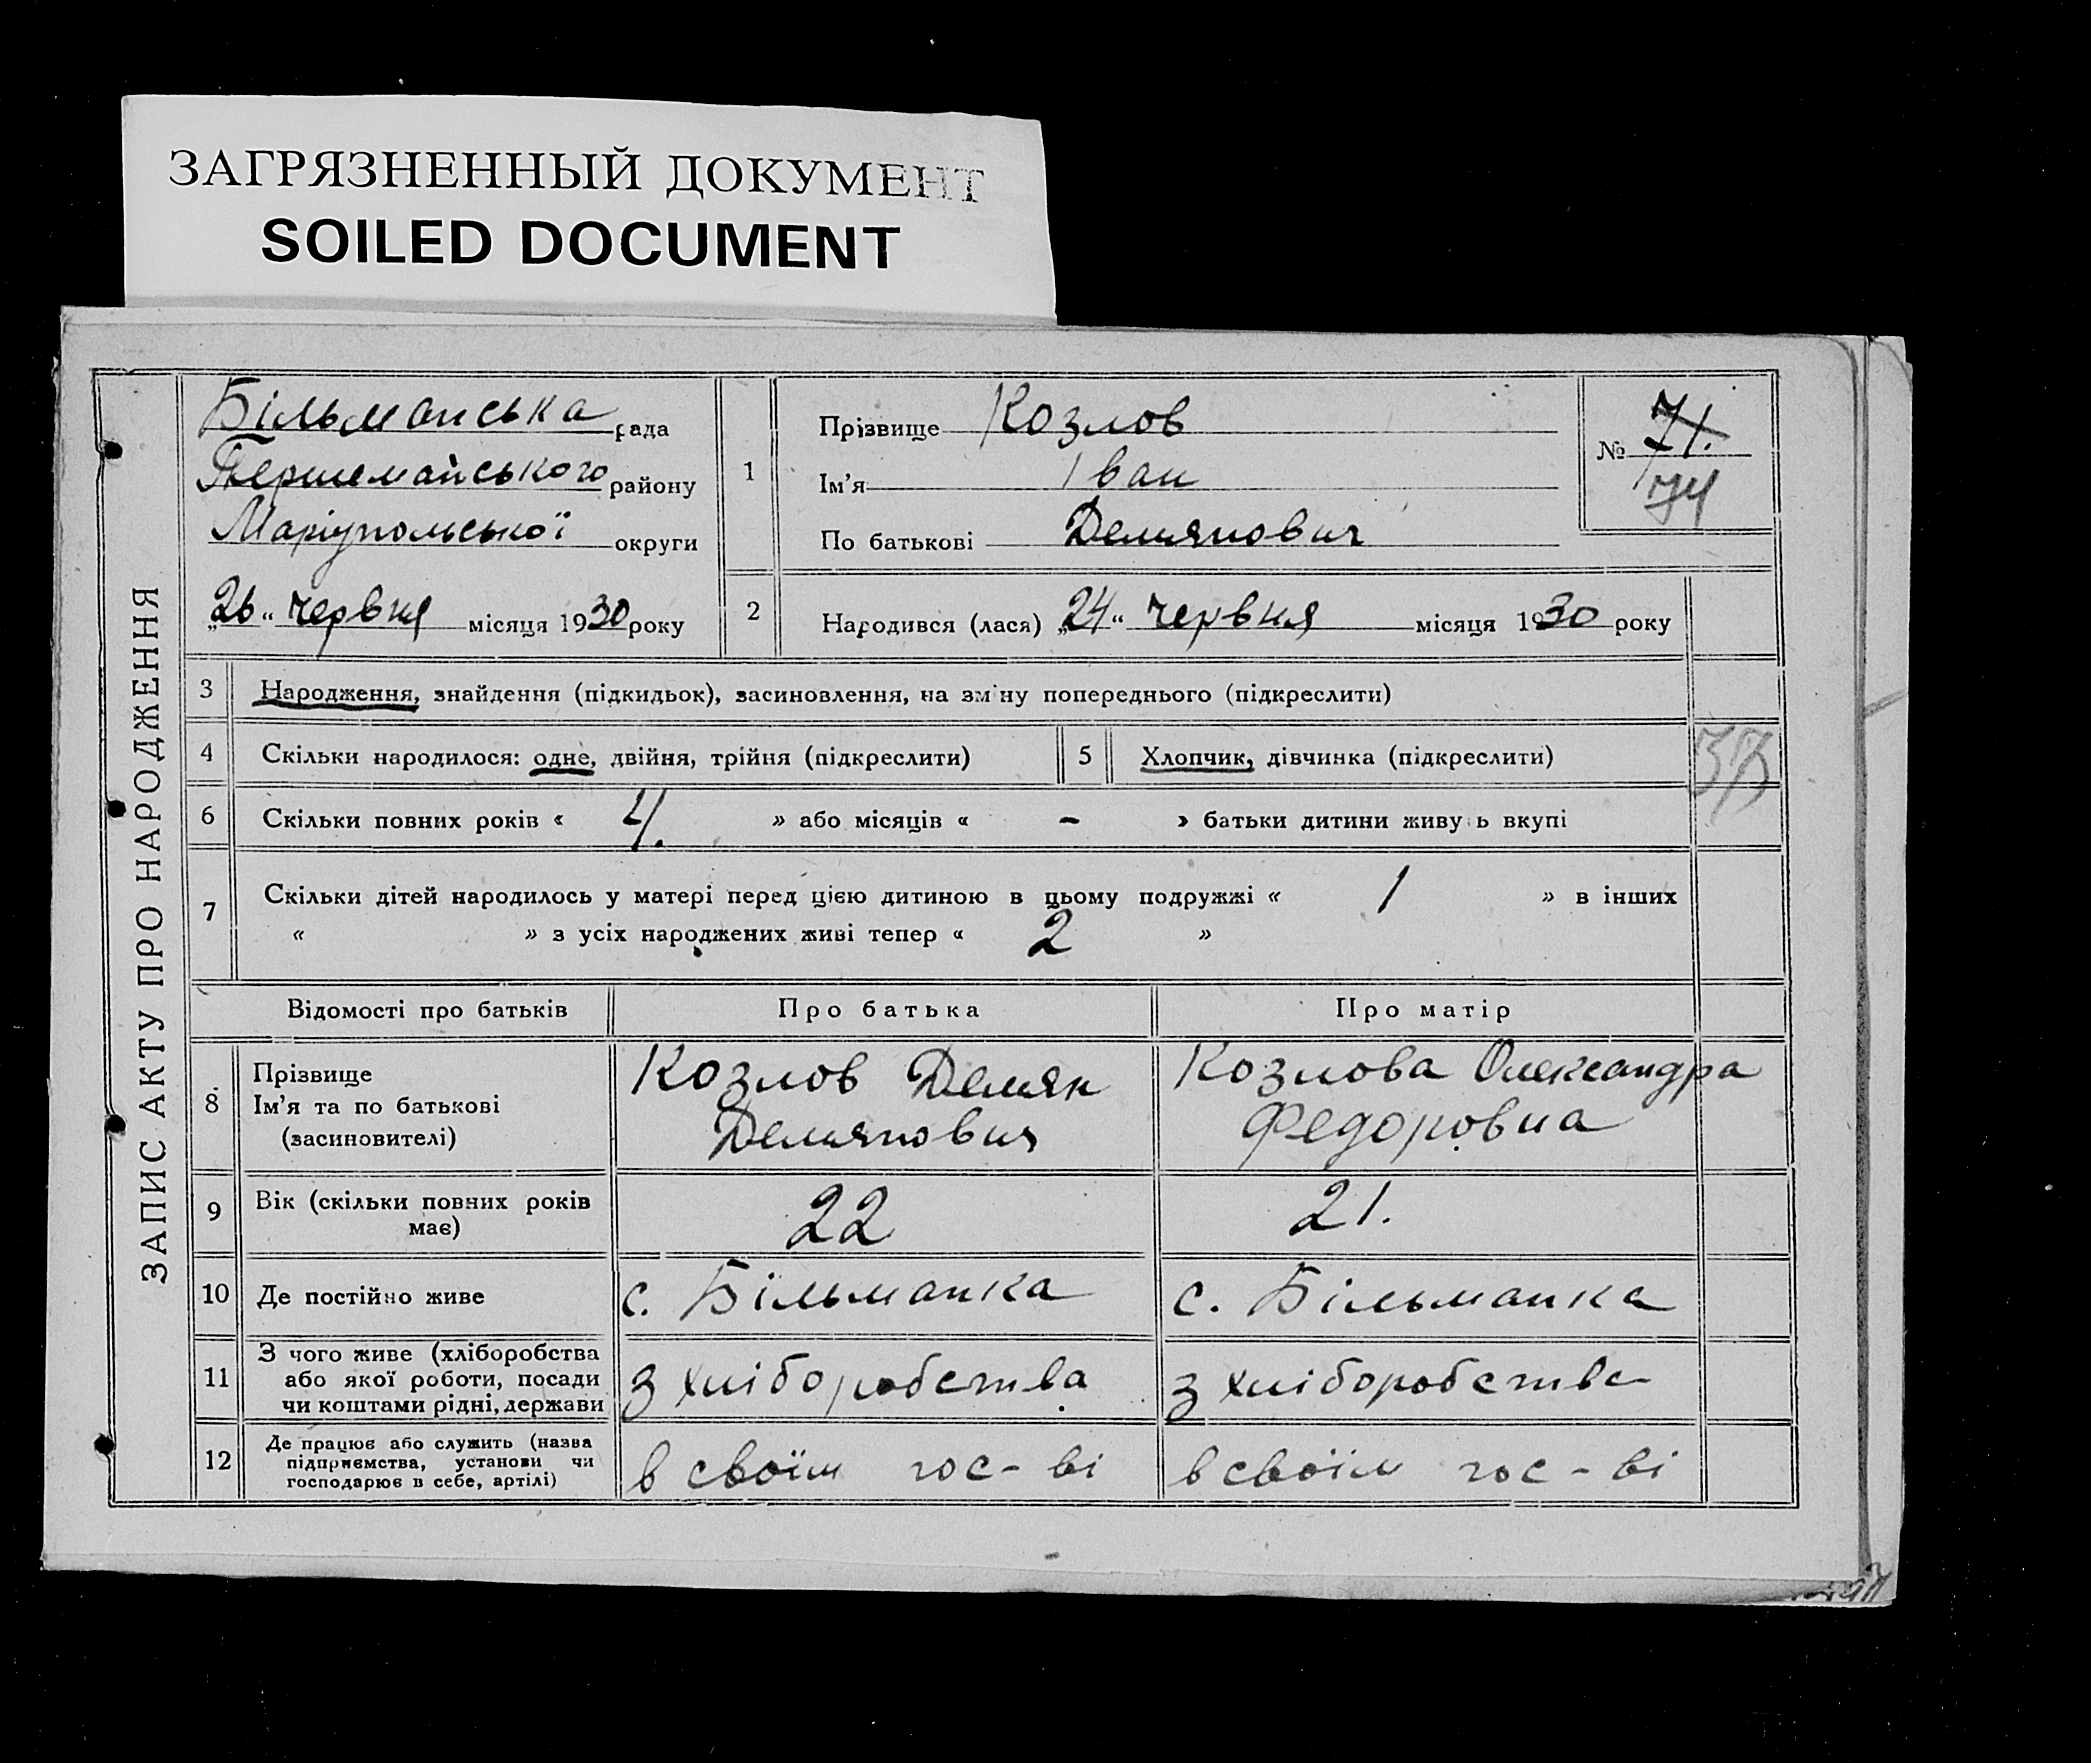 ЗАГРЯЗНЕННЫЙ ДОКУМЕНТ
SOILED DOCUMENT
ЗАПИС АКТУ ПРО НАРОДЖЕННЯ
Більманська рада
Першемайського району
Маріупольської округи
„26“ червня місяця 1930 року
1
Прізвище Козлов
Ім'я Іван
По батькові Демянович
№ 71.
74
2
Народився (лася) „24“ червня місяця 1930 року
3 Народження, знайдення (підкидьок), засиновлення, на зміну попереднього (підкреслити)
4 Скільки народилося: одне, двійня, трійня (підкреслити) 5 Хлопчик, дівчинка (підкреслити)
6 Скільки повних років « 4. » або місяців « - » батьки дитини живуть вкупі
7 Скільки дітей народилось у матері перед цією дитиною в цьому подружжі « 1 » в інших
« » з усіх народжених живі тепер « 2 »
Відомості про батьків Про батька Про матір
8 Прізвище
Ім'я та по батькові
(засиновителі)
Козлов Демян
Демянович
Козлова Олександра
Федоровна
9 Вік (скільки повних років
має)
22
21.
10 Де постійно живе с. Більманка с. Більманка
11 З чого живе (хліборобства
або якої роботи, посади
чи коштами рідні, держави
з хліборобства
з хліборобства
12 Де працює або служить (назва
підприємства, установи чи
господарює в себе, артілі)
в своїм гос-ві
в своїм гос-ві